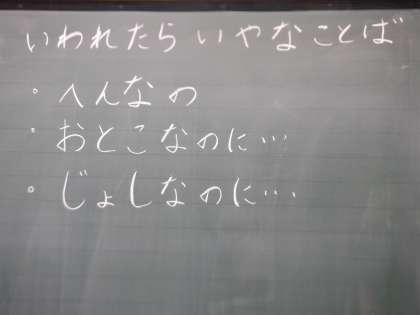 いわれたら いやなことば
・へんなの
・おとこなのに…
・じょしなのに…